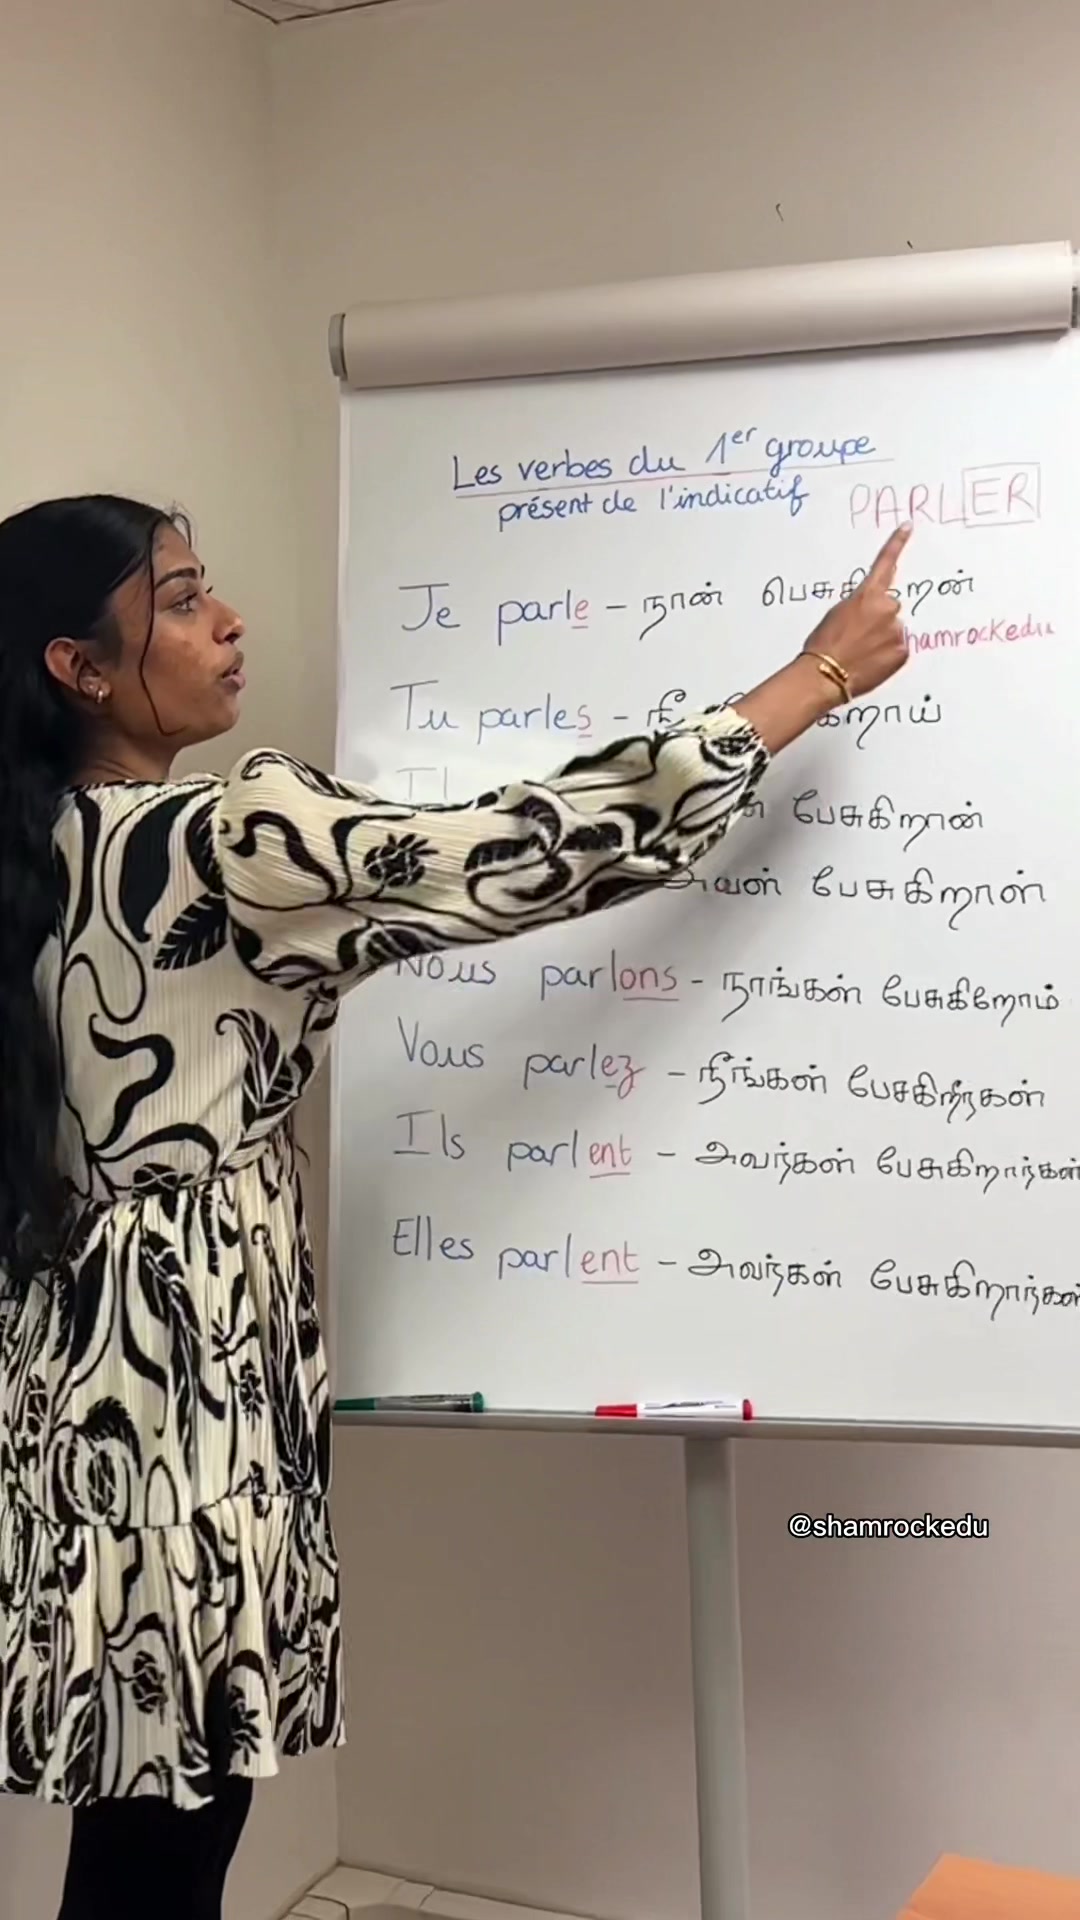 Les verbes du 1er groupe
présent de l'indicatif
PARLER
Je parle - நான்
hamrockedu
Tu parles - நீ
பேசுகிறான்
அவள் பேசுகிறாள்
Nous parlons - நாங்கள் பேசுகிறோம்
Vous parlez - நீங்கள்
Ils parlent - அவர்கள் பேசுகிறார்கள்
Elles parlent - அவர்கள் பேசுகிறார்கள்
@shamrockedu